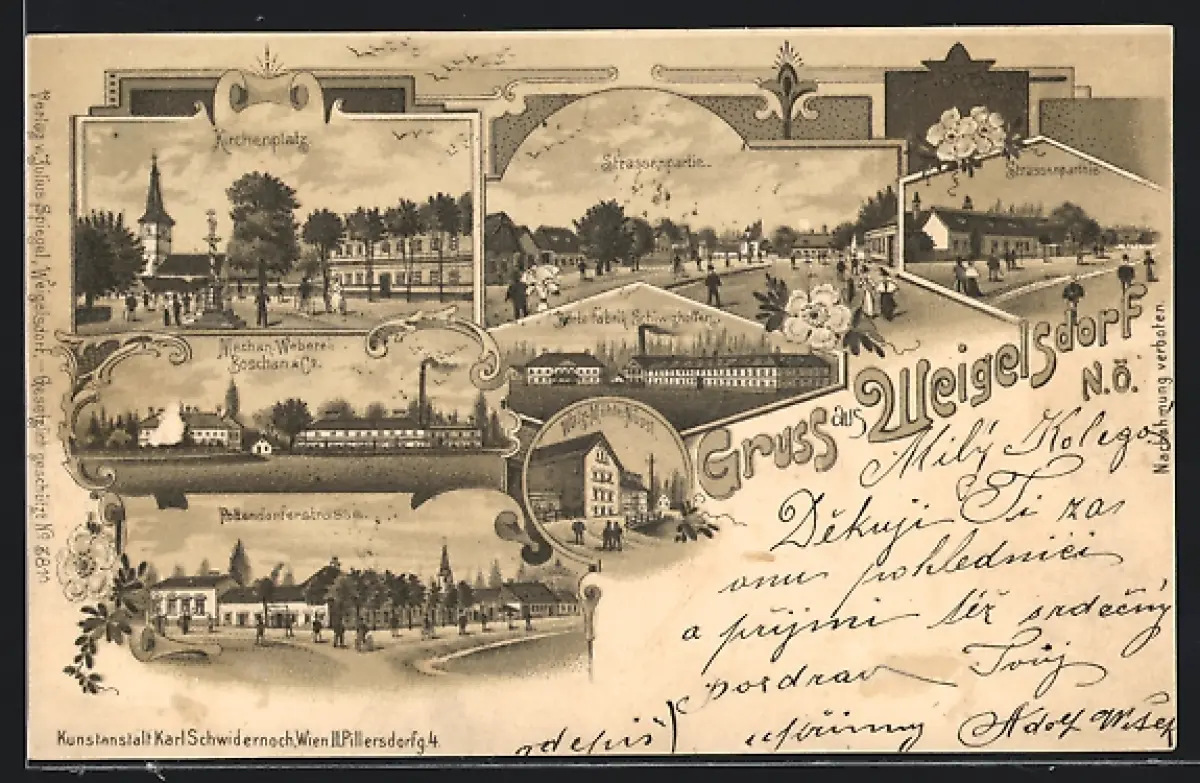 Kirchenplatz.
Strassenpartie.
Strassenparthie
Mechan. Weberei
Boschan & Co.
Fabrik
Pottendorferstrasse.
Gruss aus Weigelsdorf
N.Ö.
Verlag v. Julius Spiegel, Weigelsdorf. – Gesetzlich geschützt No
Nachahmung verboten.
Milý Kolego
Děkuji Ti za
onu pohlednici
a přijmi též srdečný
pozdrav Tvůj
upřímný Adolf
odepiš
Kunstanstalt Karl Schwidernoch, Wien II. Pillersdorfg. 4.